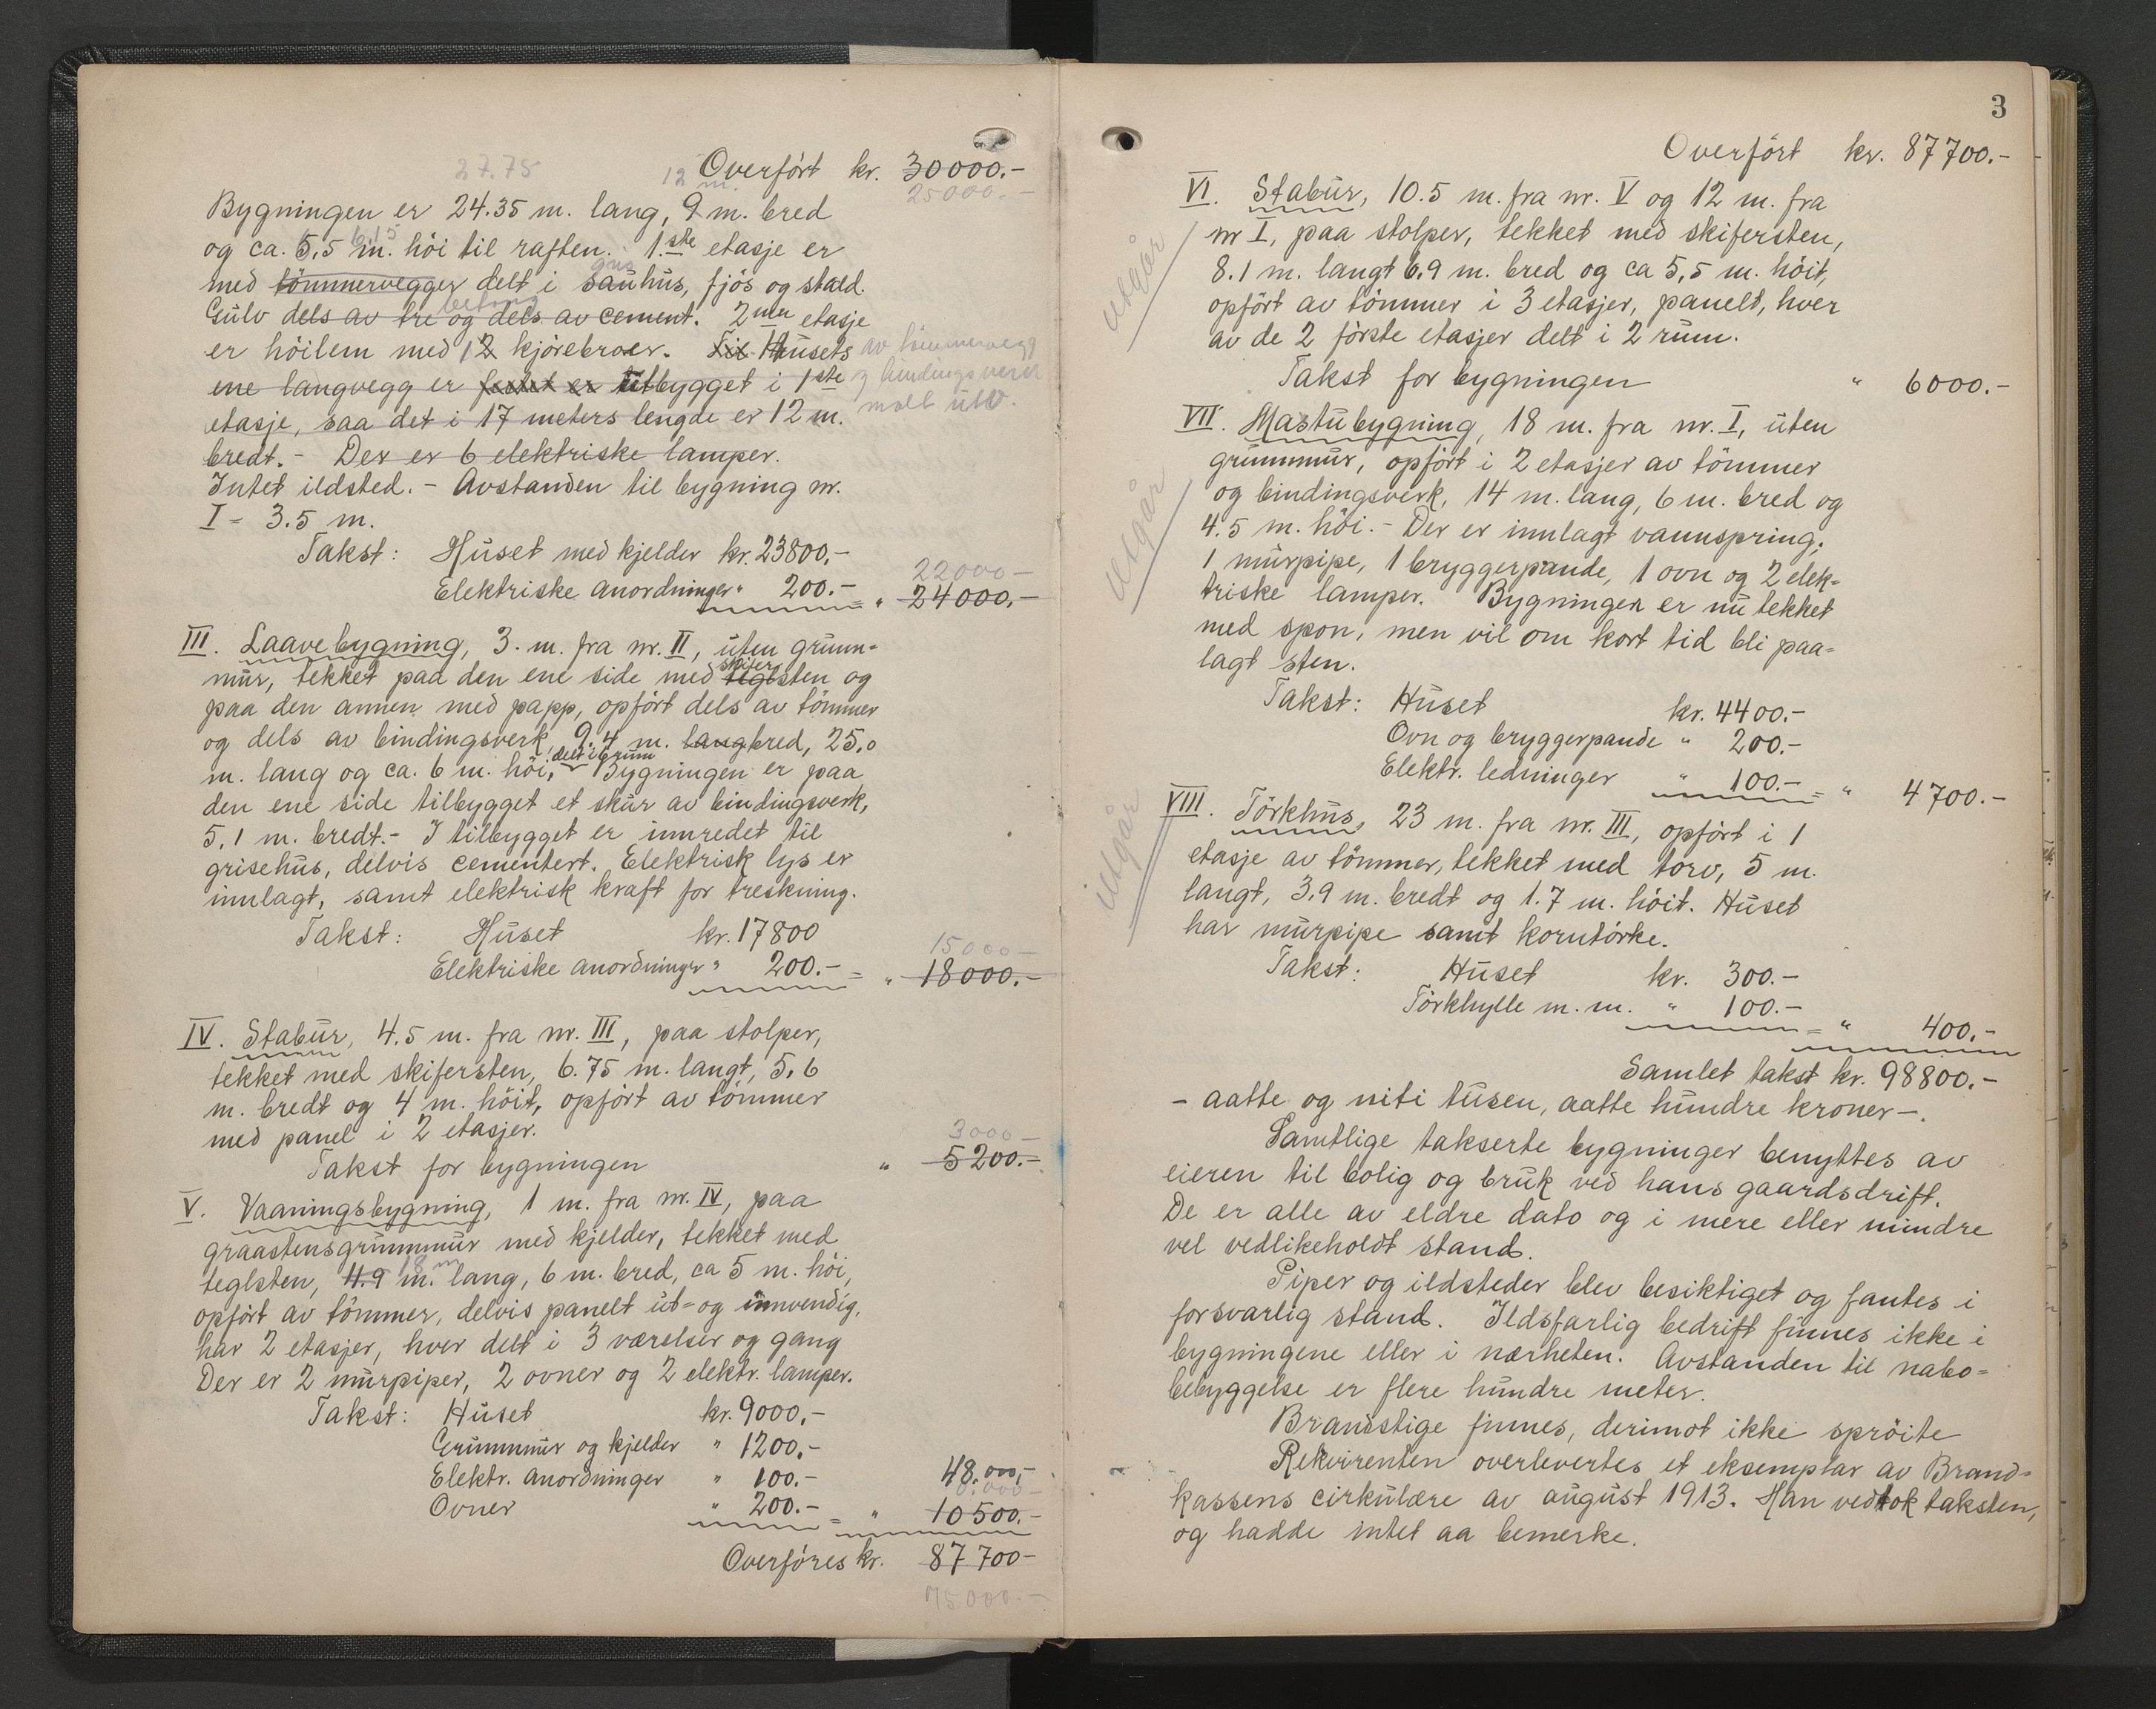 27.75
Overfört kr. 30000.-
12 m. 25000.-
Bygningen er 24.35 m. lang, 9 m. bred
6.15
og ca. 5.5 m. höi til raften. 1.ste etasje er
gris
med tömmervegger delt i sauhus, fjös og stald.
betong
Gulv dels av tre og dels av cement. 2nden etasje
er höilem med 12 kjörebroer. Til Husets av tömmervegg
ene langvegg er festet er tilbygget i 1ste og bindingsverk
etasje, saa det i 17 meters lengde er 12 m. malt utv.
bredt.- Der er 6 elektriske lamper.
Intet ildsted.- Avstanden til bygning nr.
I = 3.5 m.
Takst: Huset med kjelder kr. 23800.-
22000-
Elektriske anordninger " 200.- = " 24000.-
III. Laavebygning, 3. m. fra nr. II, uten grunn-
skifer
mur, tekket paa den ene side med teglsten og
paa den annen med papp, opfört dels av tömmer
og dels av bindingsverk, 9.4 m. lang bred, 25.0
delt i 6 rum
m. lang og ca. 6 m. höi, Bygningen er paa
den ene side tilbygget et skur av bindingsverk,
5.1 m. bredt.- I tilbygget er innredet til
grisehus, delvis cementert. Elektrisk lys er
innlagt, samt elektrisk kraft for treskning.
Takst: Huset kr. 17800
15000-
Elektriske anordninger " 200.- = " 18000.-
IV. Stabur, 4.5 m. fra nr. III, paa stolper,
tekket med skifersten, 6.75 m. langt, 5.6
m. bredt og 4 m. höit, opfört av tömmer
med panel i 2 etasjer.
3000-
Takst for bygningen " 5200.-
V. Vaaningsbygning, 1 m. fra nr. IV, paa
graastensgrunnmur med kjelder, tekket med
18 m
teglsten, 11.9 m. lang, 6 m. bred, ca 5 m. höi,
opfört av tömmer, delvis panelt ut- og innvendig,
har 2 etasjer, hver delt i 3 værelser og gang
Der er 2 murpiper, 2 ovner og 2 elektr. lamper.
Takst: Huset kr. 9000.-
Grunnmur og kjelder " 1200.-
Elektr. anordninger " 100.- 48.000,-
Ovner " 200.- = " 10500.-
Overföres kr. 87700-
75000.-
3
Overfört kr. 87700.-
VI. Stabur, 10.5 m. fra nr. V og 12 m. fra
nr I, paa stolper, tekket med skifersten,
8.1 m. langt 6.9 m. bred og ca 5,5 m. höit,
utgår
opfört av tömmer i 3 etasjer, panelt, hver
av de 2 förste etasjer delt i 2 rum.
Takst for bygningen " 6000.-
VII. Mastubygning, 18 m. fra nr. I, uten
grunnmur, opfört i 2 etasjer av tömmer
og bindingsverk, 14 m. lang, 6 m. bred og
utgår
4.5 m. höi.- Der er innlagt vannspring,
1 murpipe, 1 bryggerpande, 1 ovn og 2 elek-
triske lamper. Bygningen er nu tekket
med spon, men vil om kort tid bli paa-
lagt sten.
Takst: Huset kr. 4400.-
Ovn og bryggerpande " 200.-
Elektr. ledninger " 100.- = " 4700.-
VIII. Törkhus, 23 m. fra nr. III, opfört i 1
etasje av tömmer, tekket med torv, 5 m.
utgår
langt, 3.9 m. bredt og 1.7 m. höit. Huset
har murpipe samt korntörke.
Takst: Huset kr. 300.-
Törkhylle m. m. " 100.- = " 400.-
Samlet takst kr. 98800.-
- aatte og niti tusen, aatte hundre kroner -.
Samtlige takserte bygninger benyttes av
eieren til bolig og bruk ved hans gaardsdrift.
De er alle av eldre dato og i mere eller mindre
vel vedlikeholdt stand.
Piper og ildsteder blev besiktiget og fantes i
forsvarlig stand. Ildsfarlig bedrift finnes ikke i
bygningene eller i nærheten. Avstanden til nabo-
bebyggelse er flere hundre meter.
Brandstige finnes, derimot ikke spröite
Rekvirenten overlevertes et eksemplar av Brand-
kassens cirkulære av august 1913. Han vedtok taksten,
og hadde intet aa bemerke.